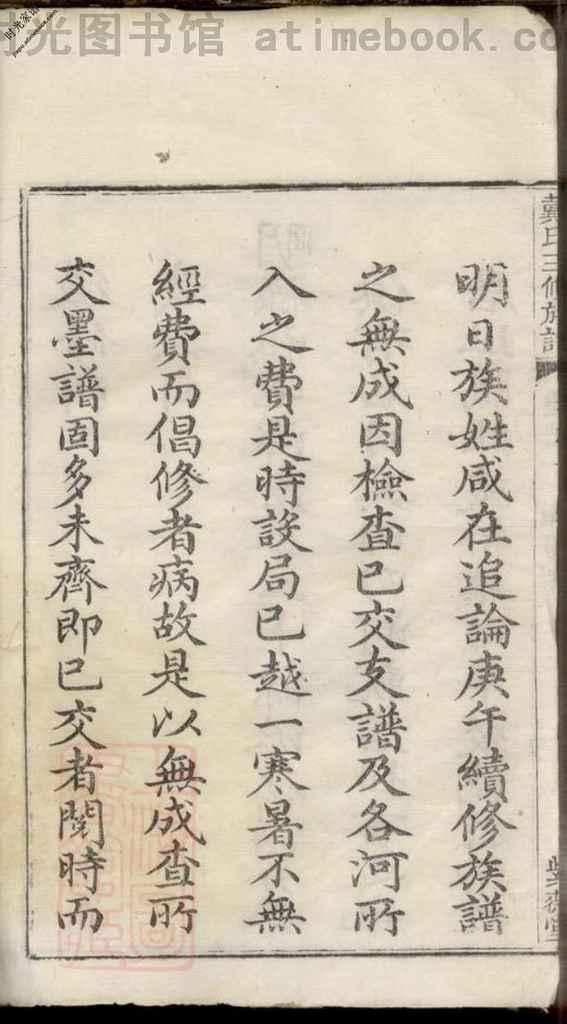 时光图书馆 atimebook.co
戴氏三修族譜
明日族姓咸在追論庚午續修族譜
之無成因檢查已交支譜及各河所
入之費是時設局已越一寒暑不無
經費而倡修者病故是以無成查所
交墨譜固多未齊即已交者閱時而